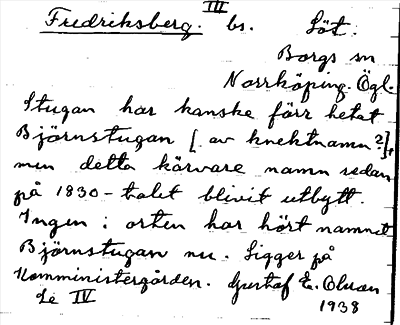 III
Fredriksberg. bs. Löt.
Borgs sn
Norrköping. Ögl.
Stugan har kanske förr hetat
Björnstugan [av knektnamn?],
men detta kärvare namn sedan
på 1830-talet blivit utbytt.
Ingen i orten har hört namnet
Björnstugan nu. Ligger på
Komministergården. Gustaf E. Olsson
Se IV 1938